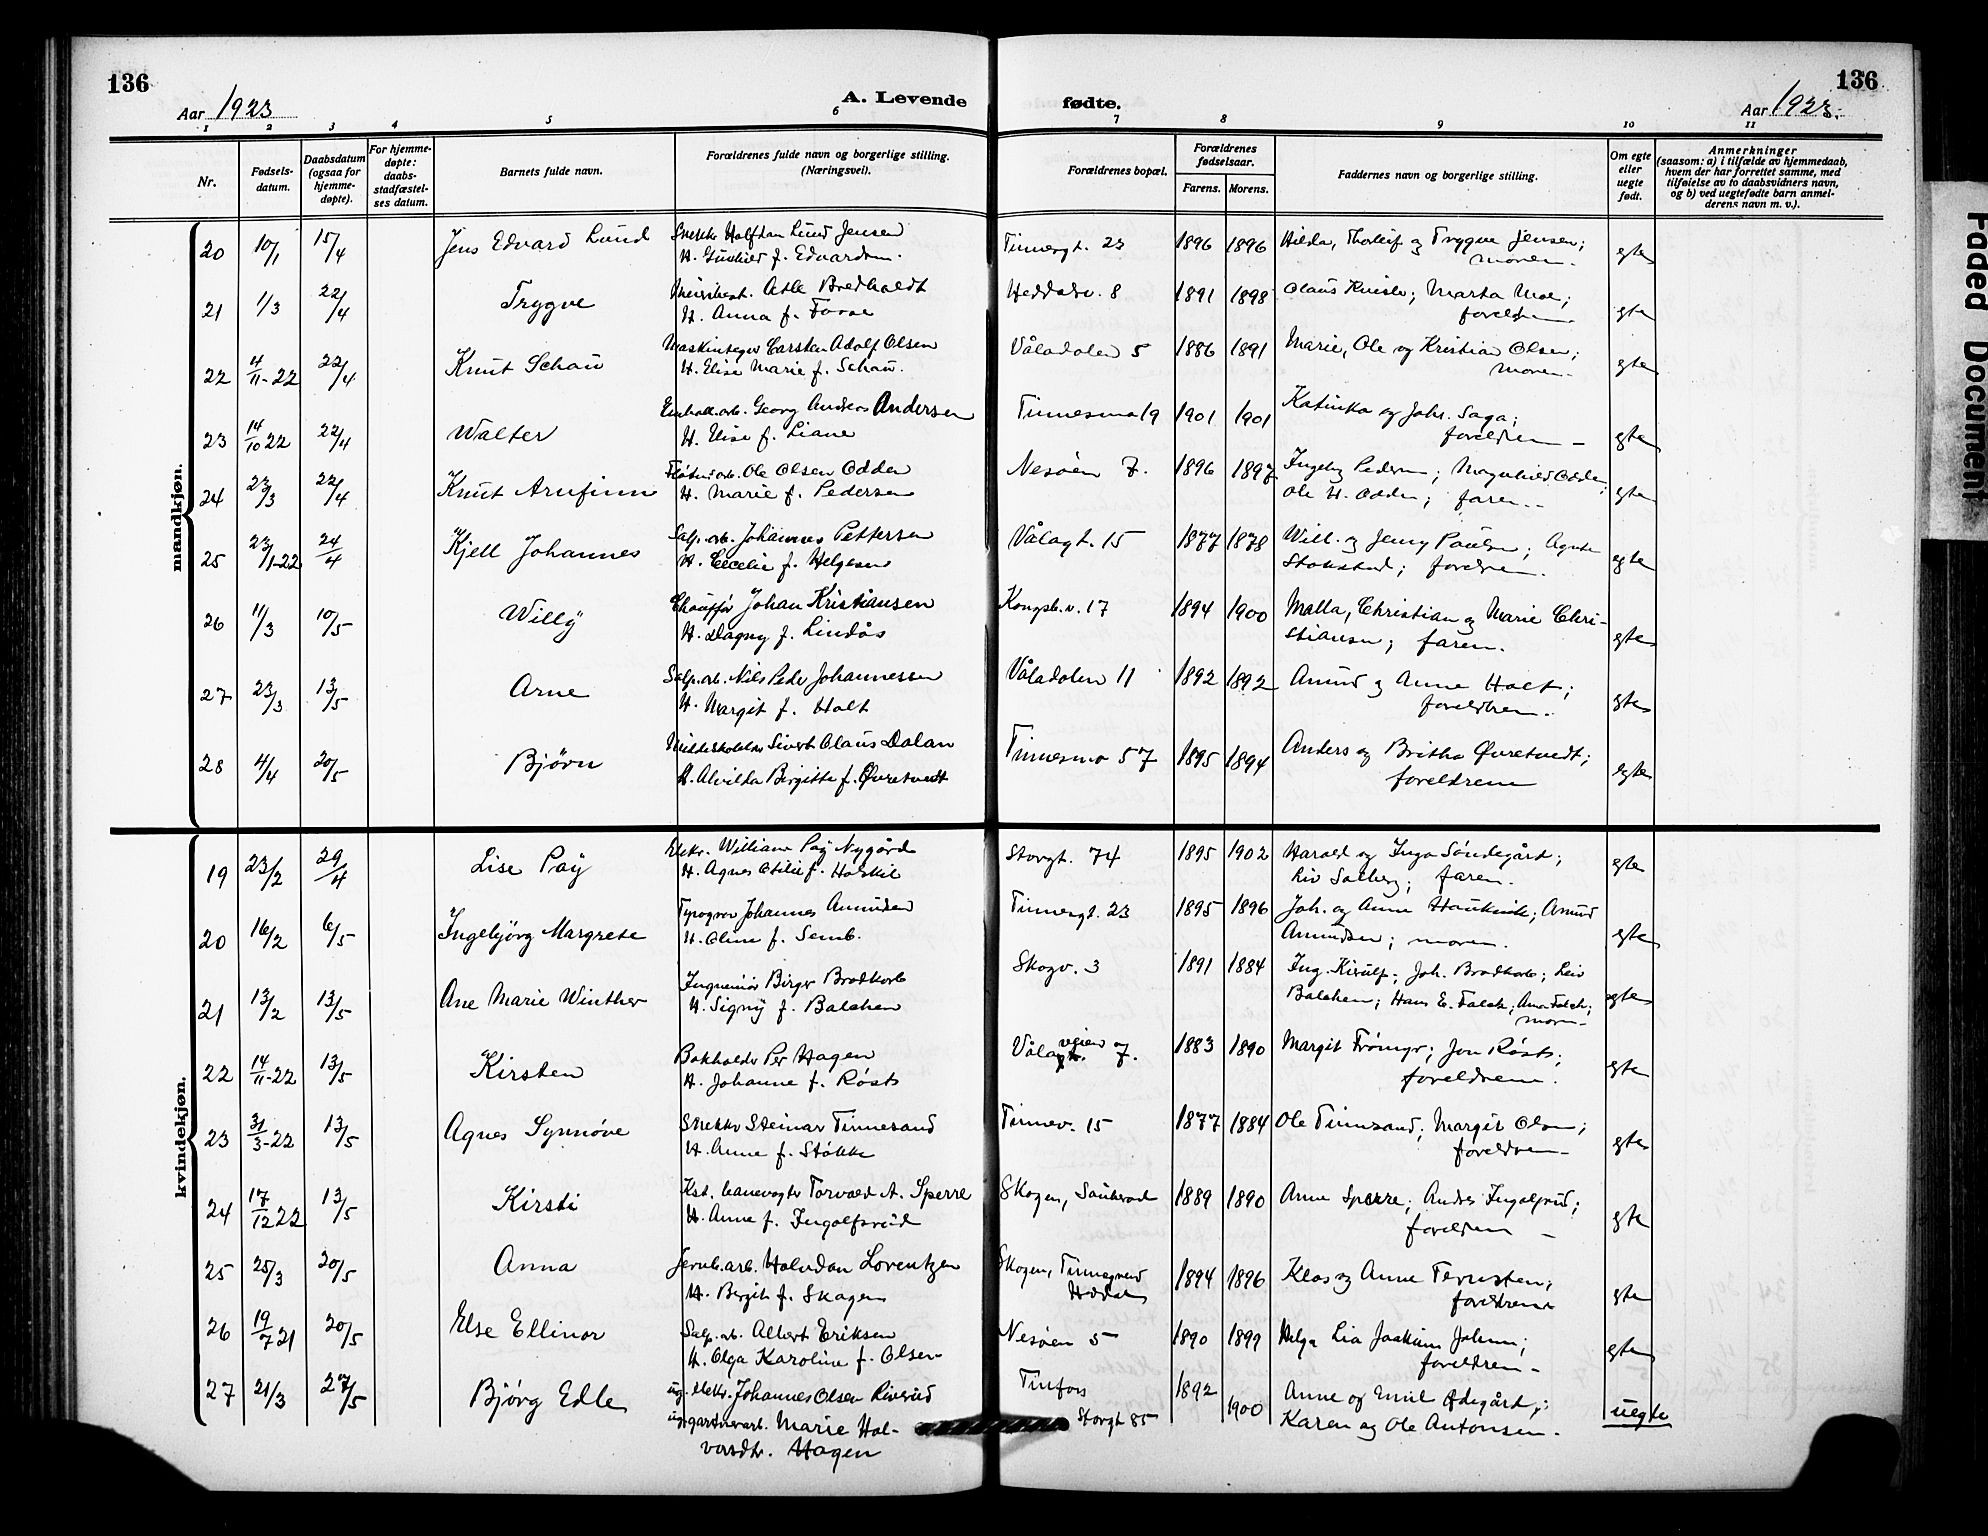 136
136
Aar 1923
A. Levende
fødte.
Aar 1923.
1 2 3 4 5 6 7 8 9 10 11
Nr.
Fødsels-
datum.
Daabsdatum
(ogsaa for
hjemme-
døpte).
For hjemme-
døpte:
daabs-
stadfæstel-
ses datum.
Barnets fulde navn.
Forældrenes fulde navn og borgerlige stilling.
(Næringsvei).
Forældrenes bopæl.
Forældrenes
fødselsaar.
Farens. Morens.
Faddernes navn og borgerlige stilling.
Om egte
eller
uegte
født.
Anmerkninger
(saasom: a) i tilfælde av hjemmedaab,
hvem der har forrettet samme, med
tilføielse av to daabsvidners navn,
og b) ved uegtefødte barn anmel-
derens navn m. v.).
mandkjøn.
20 10/1 15/4 Jens Edvard Lund Snekker Halfdan Lund Jensen Tinnegt. 23 1896 1896 Hilda, Thorleif og Trygve Jensen; egte
H. Gunhild f. Edvardsen. moren.
21 1/3 22/4 Trygve Atle Bredholdt Heddalsv. 8 1891 1898 Claus Kvisle; Marta Moe; egte
H. Anna f. Foroe foreldrene
22 4/11-22 22/4 Knut Schau Carsten Adolf Olsen Våladalen 5 1886 1891 Marie, Ole og Kristian Olsen; egte
H. Elise Marie f. Schau. moren.
23 14/10 22 22/4 Walter Emball.arb. Georg Anders Andersen Tinnesmo 19 1901 1901 Katinka og Johs. Saga; egte
H. Elise f. Liane foreldrene
24 23/3 22/4 Knut Arnfinn Fløtn.arb. Ole Olsen Odden Nesøen 7. 1896 1897 Ingeborg Pedersen; Magnhild Odden; egte
H. Marie f. Pedersen Ole H. Odden; faren.
25 23/1-22 24/4 Kjell Johannes Salp.arb. Johannes Pettersen Vålagt. 15 1877 1878 Will. og Jenny Paulsen; Agnete egte
H. Cecelie f. Helgesen Stokstad; foreldrene.
26 11/3 10/5 Willy Chauffør Johan Kristiansen Kongsb.v. 17 1894 1900 Malla, Christian og Marie Chri- egte
H. Dagny f. Lindås stiansen; faren.
27 23/3 13/5 Arne Salp.arb. Nils Peder Johannessen Våladalen 11 1892 1892 Amund og Anne Holt; egte
H. Margit f. Holt foreldrene.
28 4/4 20/5 Bjørn Sivert Claus Dalan Tinnesmo 57 1895 1894 Anders og Britha Øvretvedt; egte
H. Alvilda Birgitte f. Øvretvedt foreldrene
kvindekjøn.
19 23/2 29/4 Lise Pay Elektr. William Pay Nygård Storgt. 74 1895 1902 Harald og Inga Søndegård; egte
H. Agnes Otilie f. Holskil Liv Solberg; faren.
20 16/2 6/5 Ingebjørg Margrete Typograf Johannes Amundsen Tinnegt. 23 1895 1896 Joh. og Anne Haukvik; Amund egte
H. Oline f. Semb. Amundsen; moren.
21 13/2 13/5 Ane Marie Winther Ingeniør Birger Brodtkorb Skogv. 3 1891 1884 Ing. Kierulf; Joh. Brodtkorb; Leiv egte
H. Signy f. Balchen Balchen; Hans E. Falck; Anna Falck;
moren
22 14/11-22 13/5 Kirsten Bokholder Per Hagen Våla veien 7. 1883 1890 Margit Frømyr; Jon Røsts; egte
H. Johanne f. Røsts foreldrene.
23 31/3-22 13/5 Agnes Synnøve Snekker Steinar Tinnesand Tinnev. 15 1877 1884 Ole Tinnesand; Margit Olsen; egte
H. Anne f. Støkke foreldrene
24 17/12 22 13/5 Kirsti Kst. banevogter Torvald A. Sperre Skogen, Sauherad 1889 1890 Anne Sperre; Andres Ingolfsrud; egte
H. Anne f. Ingolfsrud foreldrene
25 25/3 20/5 Anna Jernb.arb. Halvdan Lorentzen Skogen, Tinnegrend 1894 1896 Klas og Anne Ternsten; egte
H. Bergit f. Skogen Heddal foreldrene
26 19/7 21 20/5 Else Ellinor Salp.arb. Albert Eriksen Nesøen 5 1890 1899 Helga Lia Joakim Johnsen; egte
H. Olga Karoline f. Olsen foreldrene
27 21/3 27/5 Bjørg Edle ug. elektr. Johannes Olsen Riverud Tinfos 1892 Anne og Emil Ødegård; uegte
ug. gartnerarb. Marie Hal- Storgt 85 1900 Karen og Ole Antonsen.
vorsdtr. Hagen
Faded Document